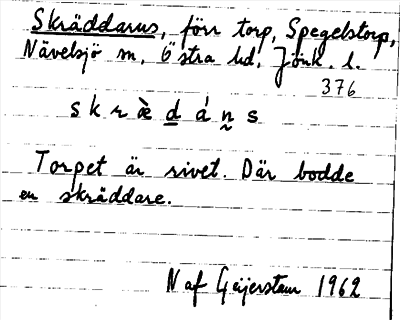 Skräddarns, förr torp, Spegelstorp,
Nävelsjö sn, Östra hd, Jönk. l.
376
s k r æ̀ d á n s
Torpet är rivet. Där bodde
en skräddare.
N af Geijerstam 1962